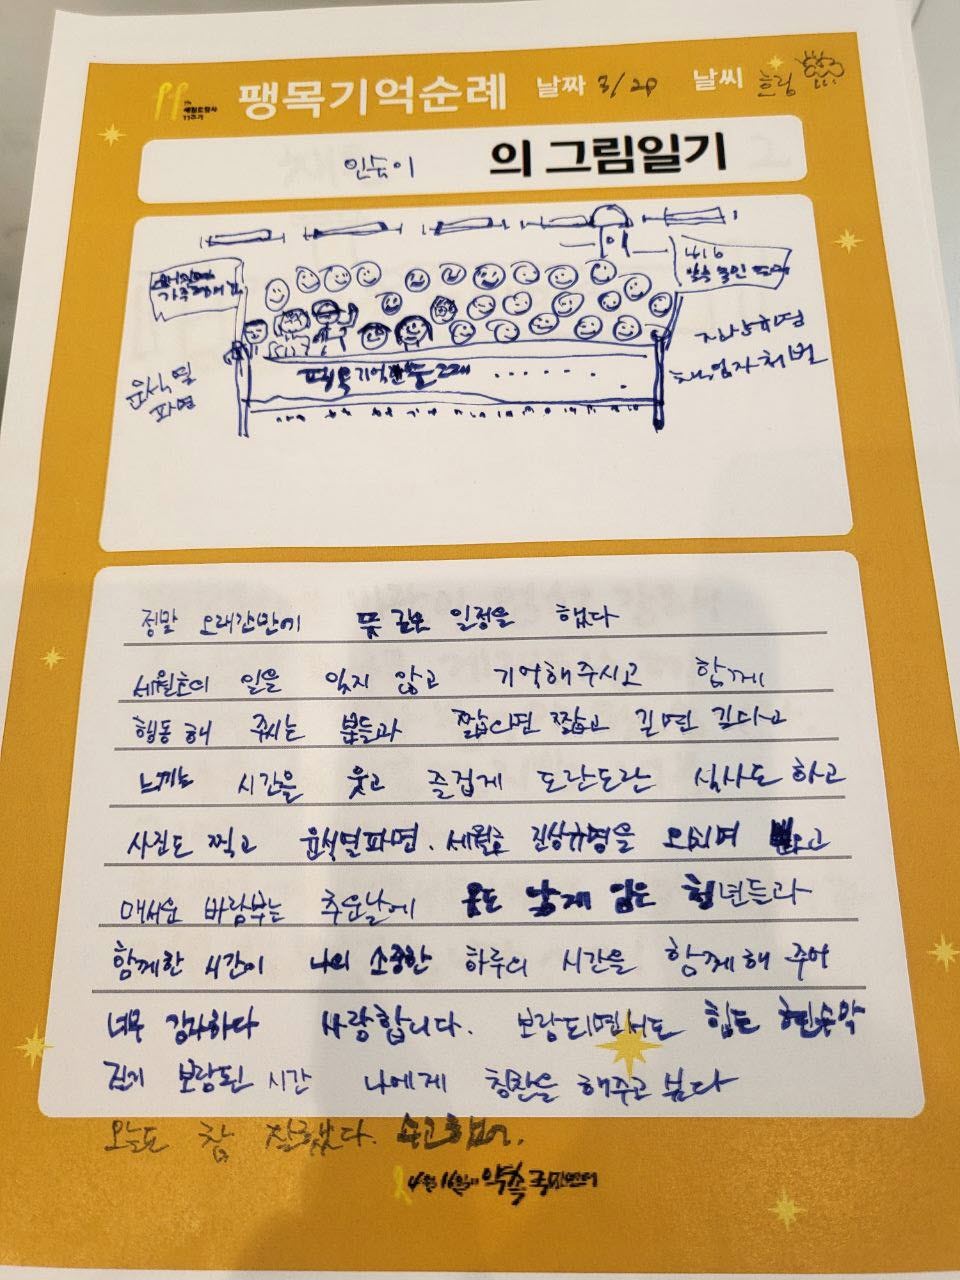 세월호참사
11주기
팽목기억순례 날짜 3/29 날씨 흐림
인숙이 의 그림일기
416
가족
윤석열
파면
진상규명
책임자처벌
팽목기억순례
정말 오래간만에 뜻 깊은 일정을 했다
세월호의 일을 잊지 않고 기억해주시고 함께
행동해 주시는 분들과 짧으면 짧고 길면 길다고
느끼는 시간을 웃고 즐겁게 도란도란 식사도 하고
사진도 찍고 윤석열파면. 세월호 진상규명을 외치며
매서운 바람부는 추운날에 청년들과
함께한 시간이 나의 소중한 하루의 시간을 함께해 주어
너무 감사하다 사랑합니다. 보람되면서도 힘든
걷기 보람된 시간 나에게 칭찬을 해주고 싶다
오늘도 참 잘했다. 수고했어.
4월16일의약속국민연대